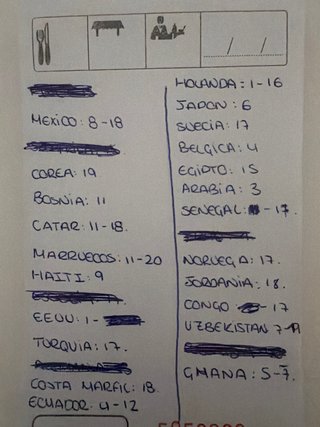 MEXICO: 8-18
COREA: 19
BOSNIA: 11
CATAR: 11-18.
MARRUECOS: 11-20
HAITI: 9
EEUU: 1-
TURQUIA: 17.
COSTA MARFIL: 18
ECUADOR: 4-12
HOLANDA: 1-16
JAPON: 6
SUECIA: 17
BELGICA: 4
EGIPTO: 15
ARABIA: 3
SENEGAL: -17.
NORUEGA: 17.
JORDANIA: 18.
CONGO - 17
UZBEKISTAN 7-
GHANA: 5-7.